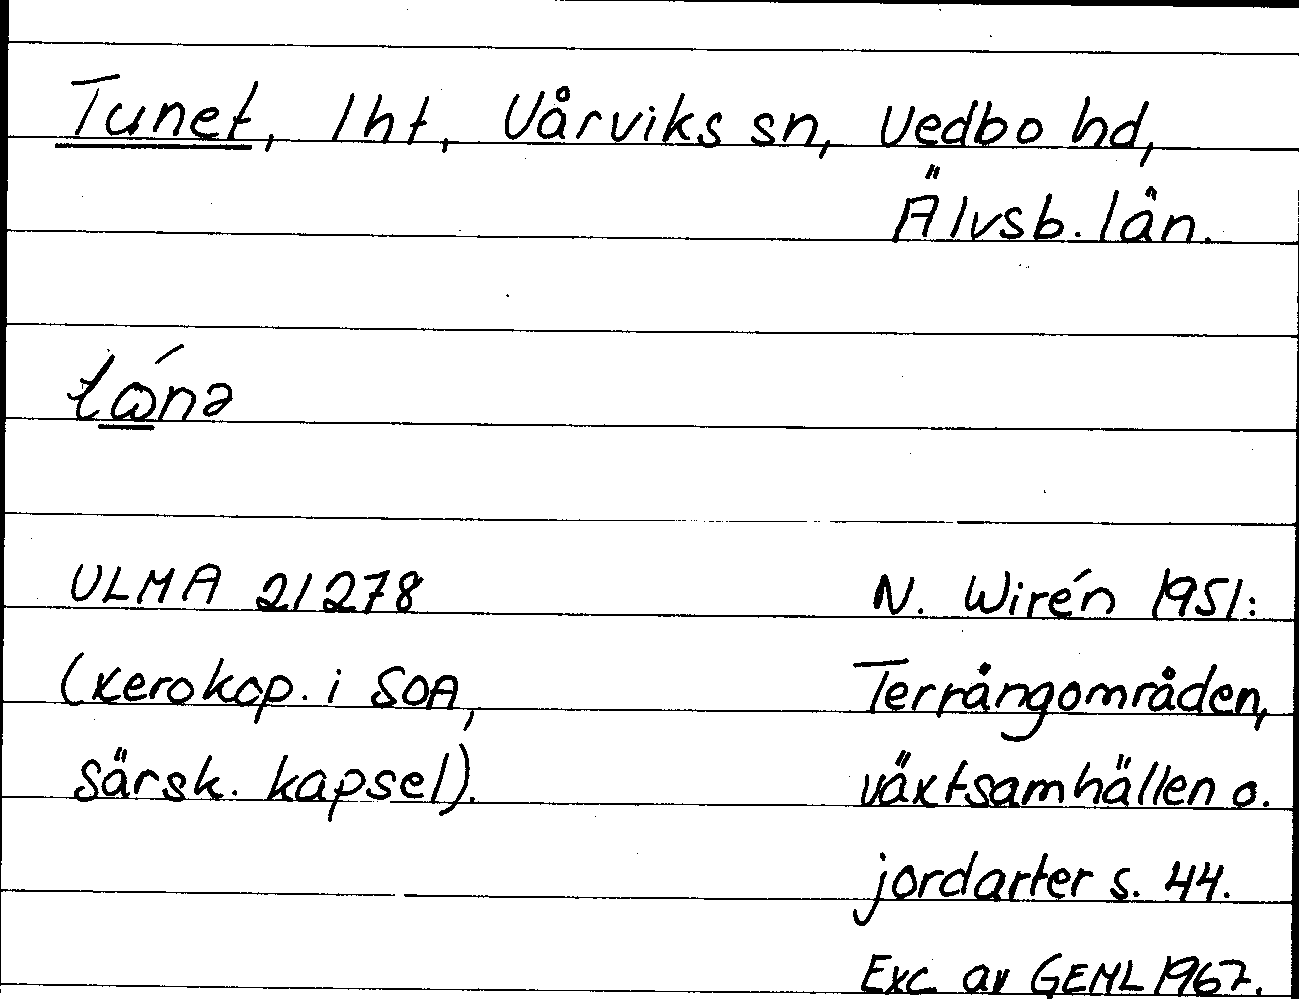 Tunet, lht, Vårviks sn, Vedbo hd,
Älvsb. län.
tώnə
ULMA 21278
(xerokop. i SOA,
särsk. kapsel).
N. Wirén 1951:
Terrängområden,
växtsamhällen o.
jordarter s. 44.
Exc av GEML 1967.